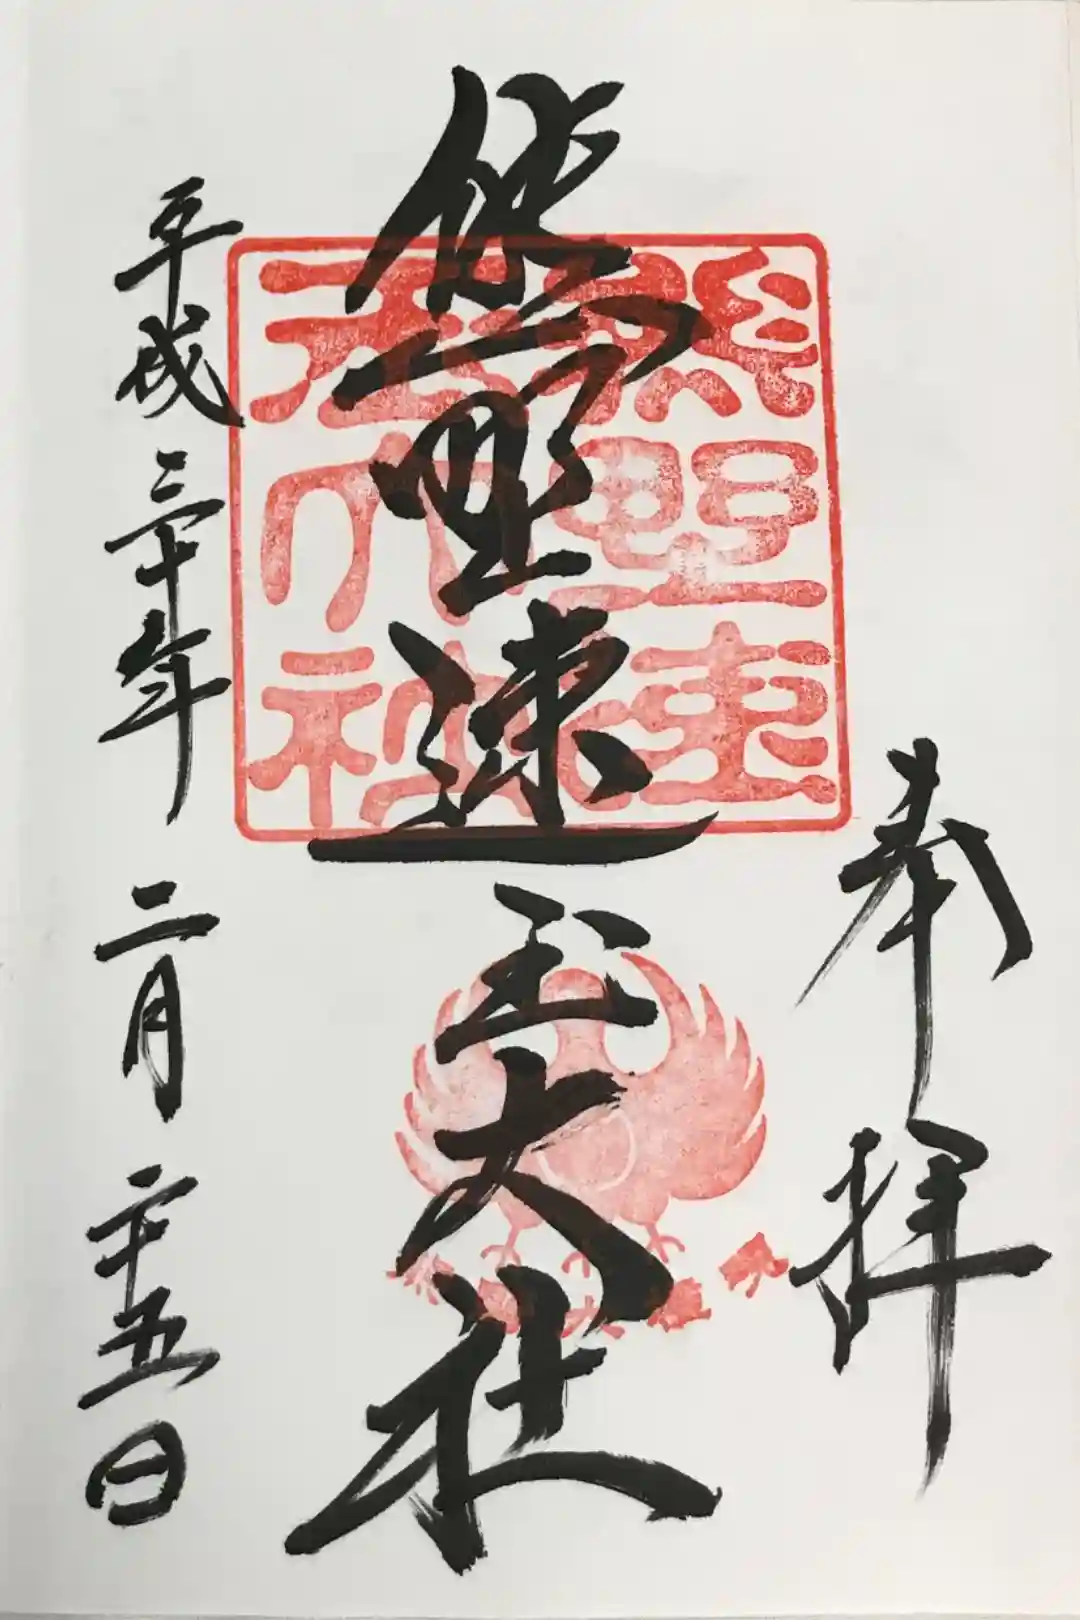 奉拝
熊野速玉大社
熊野速玉大社
平成三十年二月二十五日